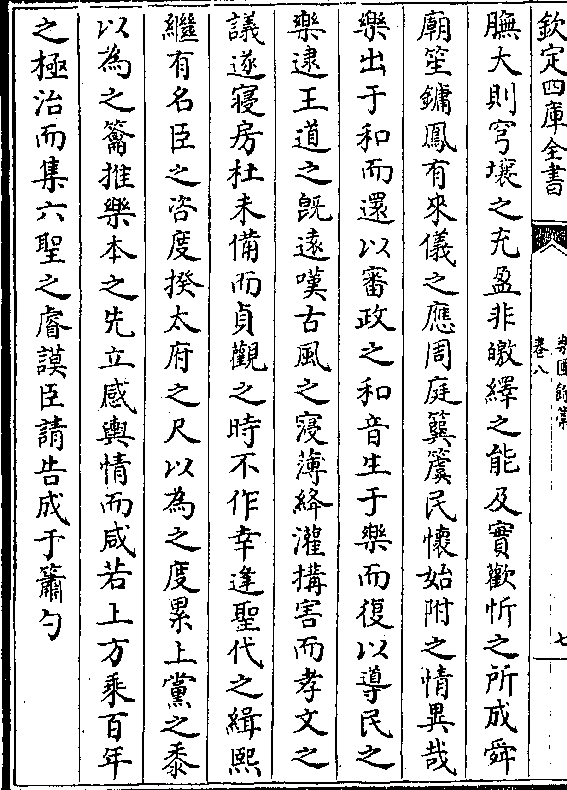 欽定四庫全書
樂圃餘藁
卷八
七
膴大則穹壤之充盈非皦繹之能及實歡忻之所成舜
廟笙鏞鳳有來儀之應周庭簨簴民懷始附之情異哉
樂出于和而還以審政之和音生于樂而復以導民之
樂逮王道之旣遠嘆古風之寖薄絳灌搆害而孝文之
議遂寢房杜未備而貞觀之時不作幸逢聖代之緝熙
繼有名臣之咨度揆太府之尺以為之度累上黨之黍
以為之籥推樂本之先立感輿情而咸若上方乘百年
之極治而集六聖之睿謨臣請告成于簫勺